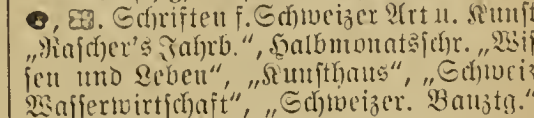 Schriften f. Schweizer Art u. Kunst
„Rascher's Jahrb.", Halbmonatsschr. „Wis
sen und Leben", „Kunsthaus", „Schweiz
Wasserwirtschaft", „Schweizer. Bauztg."